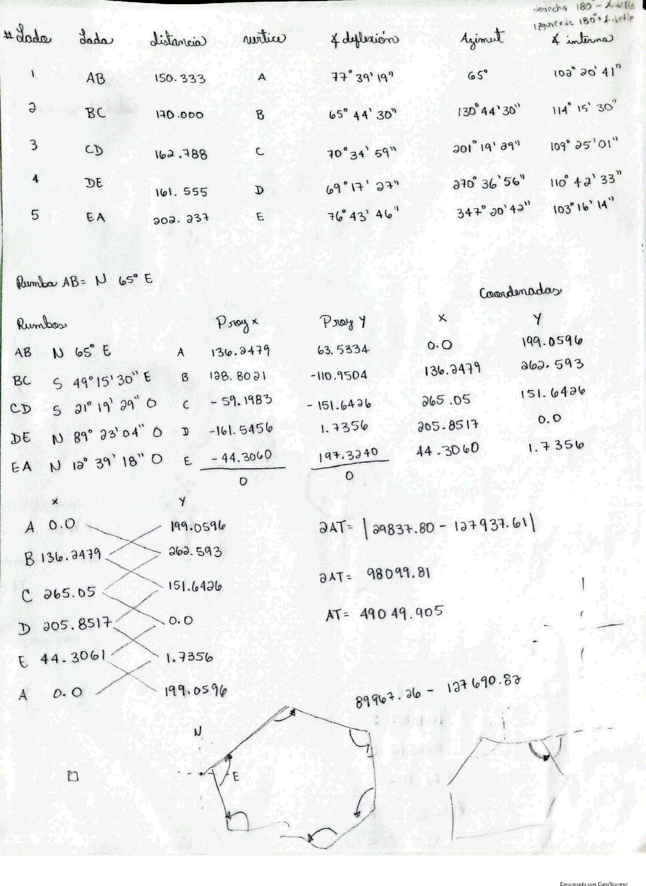 derecha 180 - ∡ deflex
izquierda 180 + ∡ deflex
# Lado Lado distancia vertice ∡ dflexión Azimut ∡ interna
1 AB 150.333 A 77° 39' 19" 65° 102° 20' 41"
2 BC 170.000 B 65° 44' 30" 130° 44' 30" 114° 15' 30"
3 CD 162.788 C 70° 34' 59" 201° 19' 29" 109° 25' 01"
4 DE 161.555 D 69° 17' 27" 270° 36' 56" 110° 42' 33"
5 EA 202.237 E 76° 43' 46" 347° 20' 42" 103° 16' 14"
Rumbo AB= N 65° E
Coordenadas
Rumbos Proy x Proy Y X Y
AB N 65° E A 136.2479 63.5334 0.0 199.0596
BC S 49° 15' 30" E B 128.8021 -110.9504 136.2479 262.593
CD S 21° 19' 29" O C -59.1983 -151.6426 265.05 151.6426
DE N 89° 23' 04" O D -161.5456 1.7356 205.8517 0.0
EA N 12° 39' 18" O E -44.3060 197.3240 44.3060 1.7356
0 0
x Y
A 0.0 199.0596
B 136.2479 262.593
C 265.05 151.6426
D 205.8517 0.0
E 44.3061 1.7356
A 0.0 199.0596
2AT= |29837.80 - 127937.61|
2AT= 98099.81
AT= 49049.905
89967.26 - 127690.82
N
E
Escaneado con CamScanner